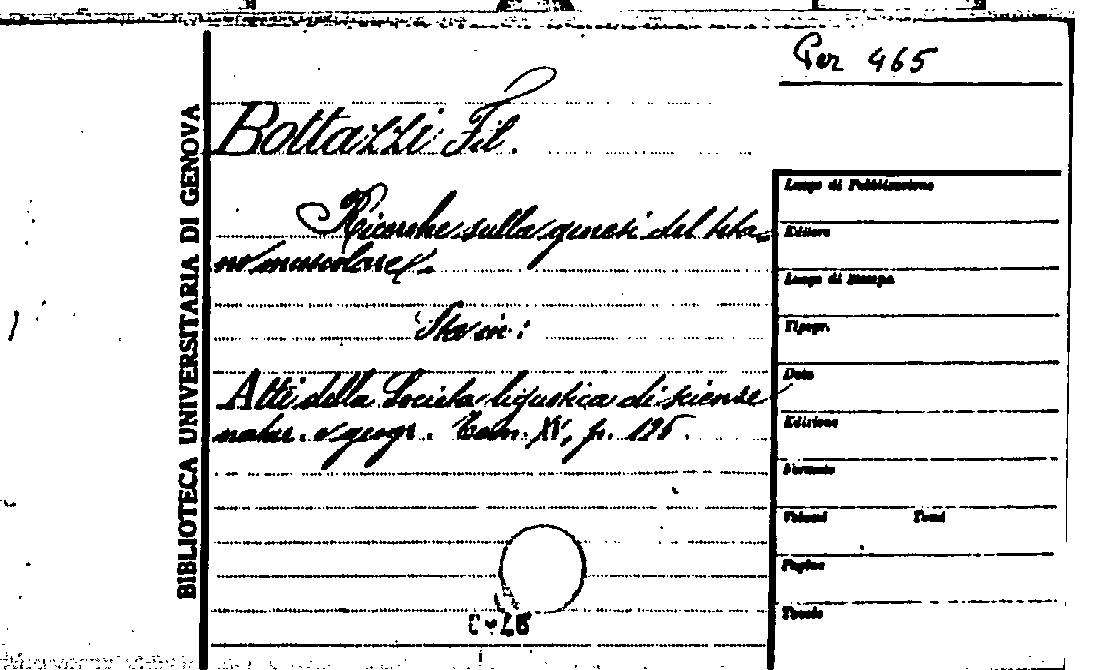 Per 465
BIBLIOTECA UNIVERSITARIA DI GENOVA
Bottazzi Fil.
Ricerche sulla genesi del teta-
no muscolare.
Sta in:
Atti della Società ligustica di scienze
natur. e geogr. Vol. XV, p. 195.
Luogo di Pubblicazione
Editore
Luogo di Stampa
Tipogr.
Data
Edizione
Formato
Volumi Tomi
Pagine
Tavole